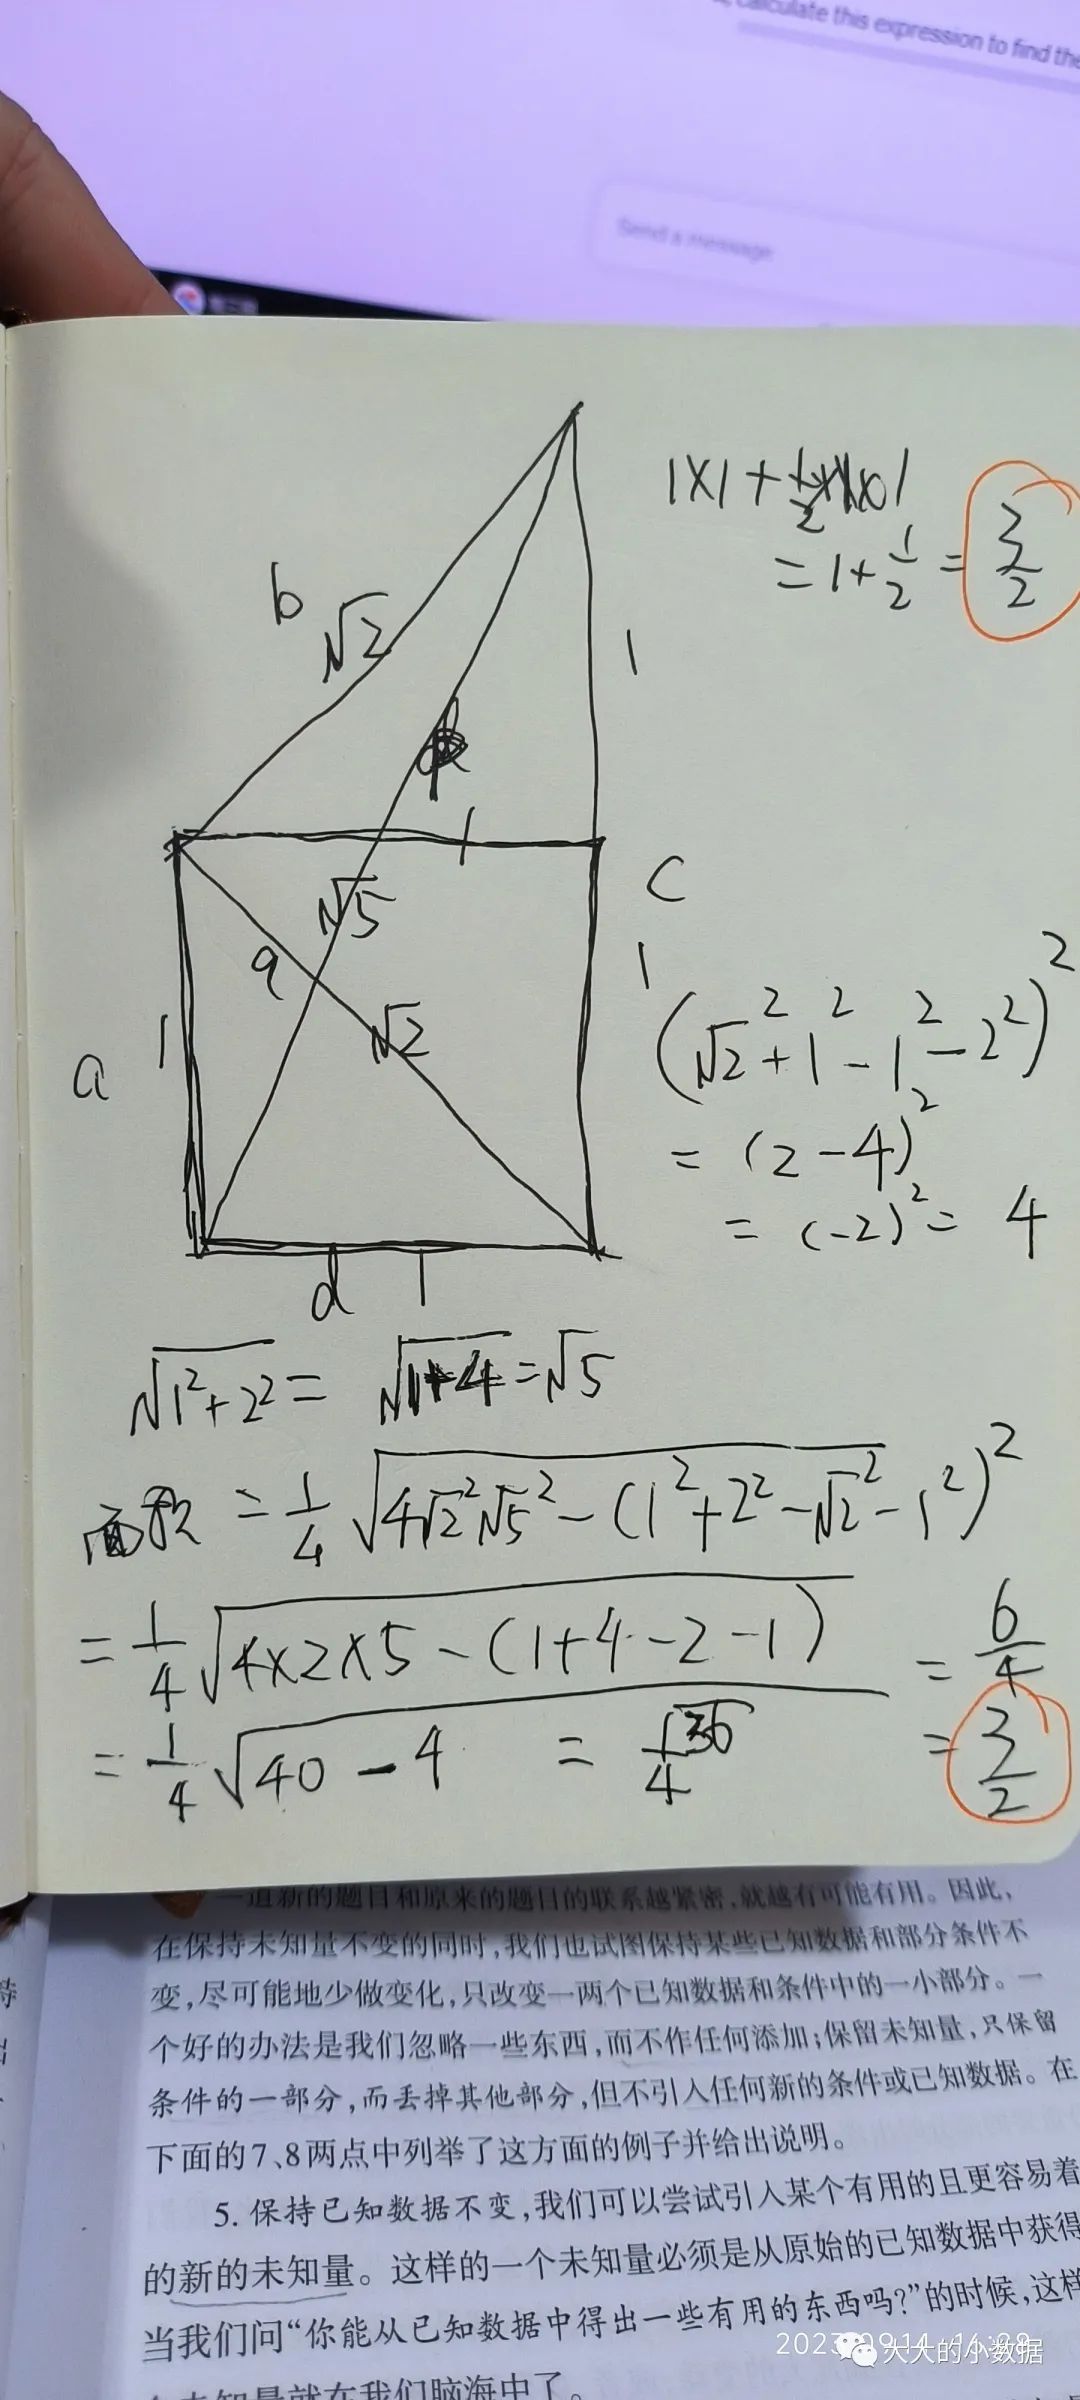 calculate this expression to find the
Send a message
1×1+
=1+1/2=3/2
b
√2
1
1
√5
c
a
1
√2
1
a
(√2²+1²-1²-2²)²
=(2-4)²
=(-2)²=4
d 1
√1²+2²=√1+4=√5
面积=1/4√4√2²√5²-(1²+2²-√2²-1²)²
=1/4√4×2×5-(1+4-2-1)
=6/4
=1/4√40-4 = 1/4√36
=3/2
一道新的题目和原来的题目的联系越紧密,就越有可能有用。因此,
在保持未知量不变的同时,我们也试图保持某些已知数据和部分条件不
变,尽可能地少做变化,只改变一两个已知数据和条件中的一小部分。一
个好的办法是我们忽略一些东西,而不作任何添加;保留未知量,只保留
条件的一部分,而丢掉其他部分,但不引入任何新的条件或已知数据。在
下面的7、8两点中列举了这方面的例子并给出说明。
5. 保持已知数据不变,我们可以尝试引入某个有用的且更容易着
的新的未知量。这样的一个未知量必须是从原始的已知数据中获得
当我们问“你能从已知数据中得出一些有用的东西吗?”的时候,这样
大大的小数据
未知量就在我们脑海中了。